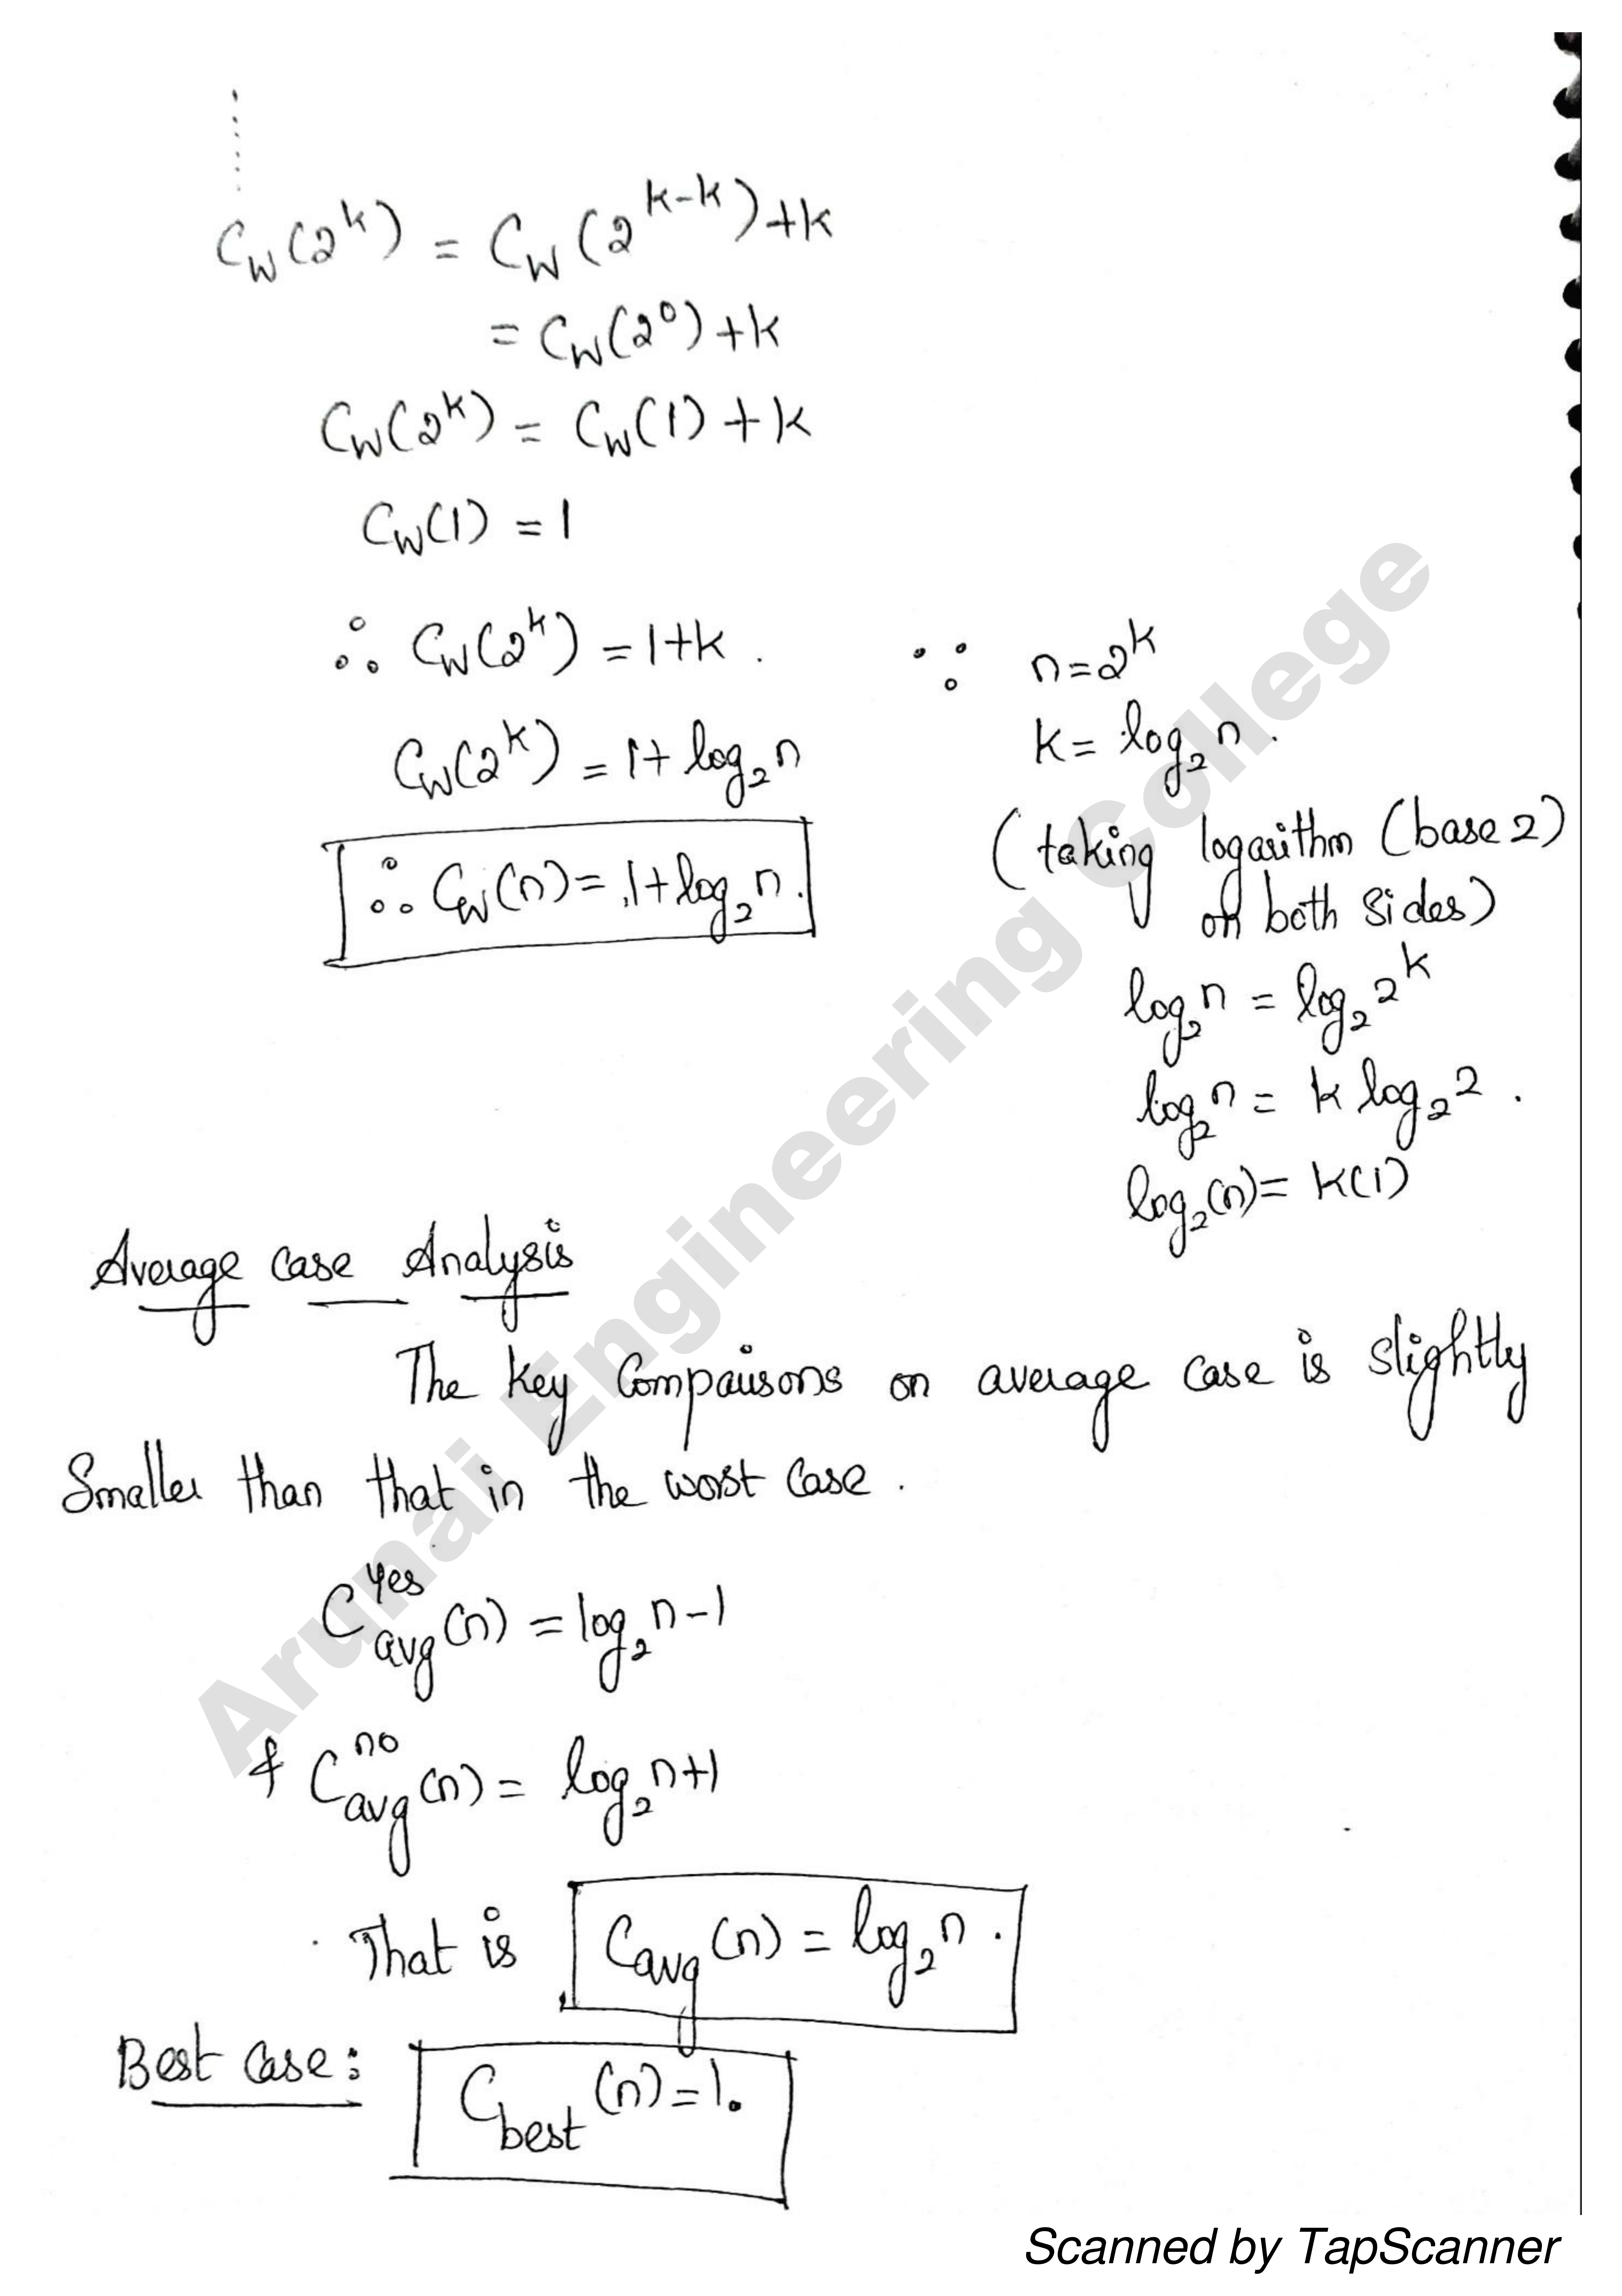 ⋮
C_W(2^k) = C_W(2^{k-k})+k
= C_W(2^0)+k
C_W(2^k) = C_W(1)+k
C_W(1) = 1
∴ C_W(2^k) = 1+k .
C_W(2^k) = 1+ log_2 n
∴ C_W(n) = 1+log_2 n.
∵ n=2^k
k= log_2 n.
(taking logarithm (base 2)
on both sides)
log_2 n = log_2 2^k
log_2 n = k log_2 2 .
log_2(n)= k(1)
Average case Analysis
The key Comparisons on average case is slightly
Smaller than that in the worst case .
C^{yes}_{avg}(n) = log_2 n-1
& C^{no}_{avg}(n) = log_2 n+1
That is C_{avg}(n) = log_2 n .
Best Case: C_{best}(n)=1.
Arunai Engineering College
Scanned by TapScanner